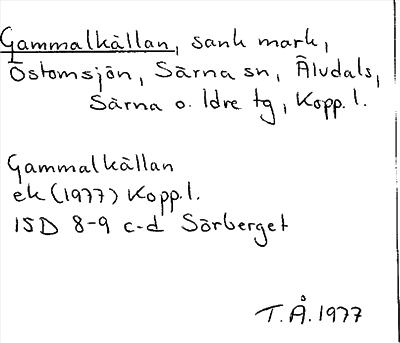 Gammalkällan, sank mark,
Östomsjön, Särna sn, Älvdals,
Särna o. Idre tg, Kopp. l.
Gammalkällan
ek (1977) Kopp. l.
15D 8-9 c-d Sörberget
T. Å. 1977